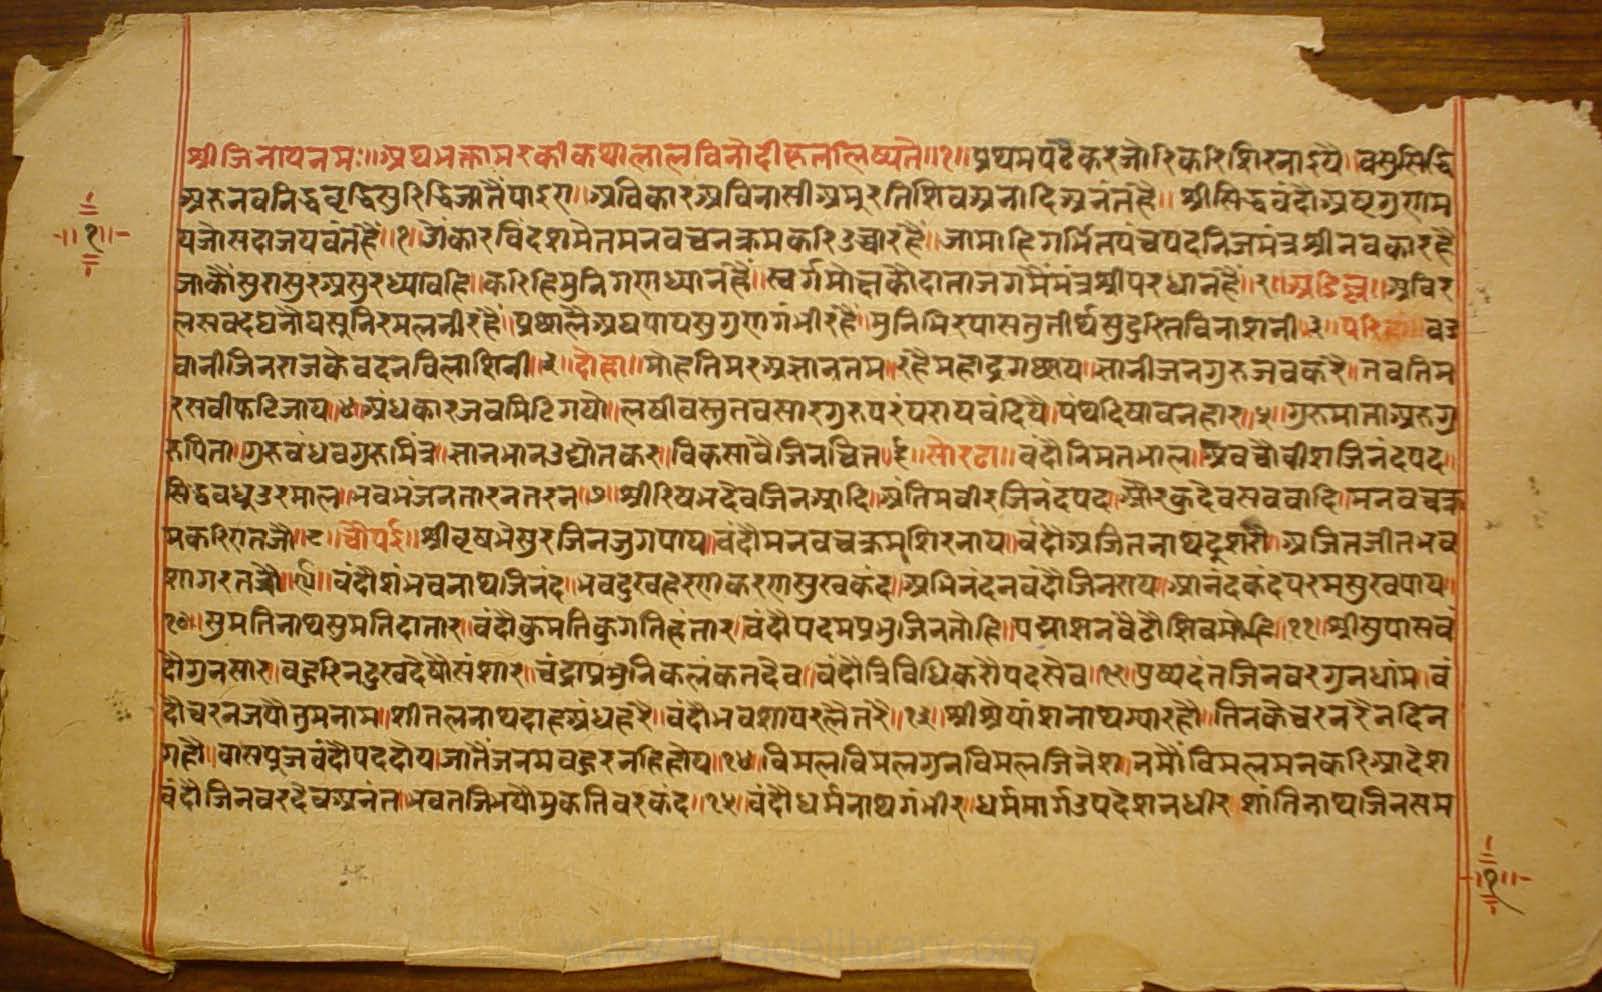 श्रीजिनायनमः॥अथभक्तामरकीकथालालविनोदीकृतलिष्यते॥१॥प्रथमपंदैकरजोरिकरिशिरनाइयै॥वसुसिद्धि
अरुनवनिद्धवृद्धिसुरिद्धिजातैंपाइए॥अविकारअविनासीअमुरतिशिवअनादिअनंतहै॥श्रीसिद्धवंदौअष्टगुणाम
यजोसदाजयवंतहैं॥१॥ओंकारविंदशमेतमनवचनक्रमकरिउच्चारहैं॥जामाहिगर्भितपंचपदनिजमंत्रश्रीनवकारहै
जाकौंसुरासुरअसुरध्यावहि॥करिहिमुनिगणध्यानहैं॥स्वर्गमोक्षकौदाताजगमैंमंत्रश्रीपरधानहै॥२॥अडिल्ल॥अविर
लसवदघनौघसुनिरमलनीरहैं॥प्रछालैअघपापसुगुणगंभीरहैं॥मुनिभिरपासतुतीर्थसुदुरितविनाशनी॥३॥
वानीजिनराजकेवदनविलाशिनी॥३॥दोहा॥मोहतिमरअज्ञानतम॥रहैमहाद्रगछाय॥ज्ञानीजनगुरुजवकरै॥तवतिम
रसवीफटिजाय॥४॥अंधकारजवमिटिगयौ॥लषीवस्तुतवसारगुरुपरंपरायवंदियै॥पंथदिषावनहार॥५॥गुरुमाताअरुगु
रुपिता॥गुरुवंधवगुरुमित्र॥ज्ञानभानउद्योतकर॥विकसावैजिनचित॥६॥सोरठा॥वंदौनिमतभाल॥अवचौवीशजिनंदपद॥
सिद्धवधुउरमाल॥भवभंजनतारनतरन॥७॥श्रीरिषभदेवजिनआदि॥अंतिमवीरजिनंदपद॥औरकुदेवसववादि॥मनवचक्र
मकरिणतजौ॥८॥चौपई॥श्रीवृषभेसुरजिनजुगपाय॥वंदौमनवचक्रमशिरनाय॥वंदौअजितनाथदूशरौ॥अजितजीतभव
शागरतर्यौ॥९॥वंदौशंभवनाथजिनंद॥भवदुखहरणकरणसुखकंद॥अभिनंदनवंदौजिनराय॥आनंदकंदपरमसुखपाय॥
१०॥सुमतिनाथसुमतिदातार॥वंदौकुमतिकुगतिहंतार॥वंदौपदमप्रभुजिनतोहि॥पद्माशनवैठौशिवमोहि॥११॥श्रीसुपासवं
दौगुनसार॥वहुरिनदुखदेषौसंशार॥चंद्राप्रभुनिकलंकतदेव॥वंदौत्रिविधिकरौपदसेव॥१२॥पुष्पदंतजिनवरगुनधांम॥वं
दौचरनजयौतुमनाम॥शीतलनाथदाहअंधहरै॥वंदौभवशायरलैतरै॥१३॥श्रीश्रेयांशनाथग्यारहौ॥तिनकेचरनरैनदिन
गहौ॥वासपुजवंदौपददोय॥जातैंजनमवहुरनहिहोय॥१४॥विमलविमलगुनविमलजिनेश॥नमौंविमलमनकरिआदेश
वंदौजिनवरदेवअनंत॥भवतजिभयौमुकतिवरकंद॥१५॥वंदौधर्मनाथगंभीर॥धर्ममार्गउपदेशनधीरशांतिनाथजिनसम
१
१